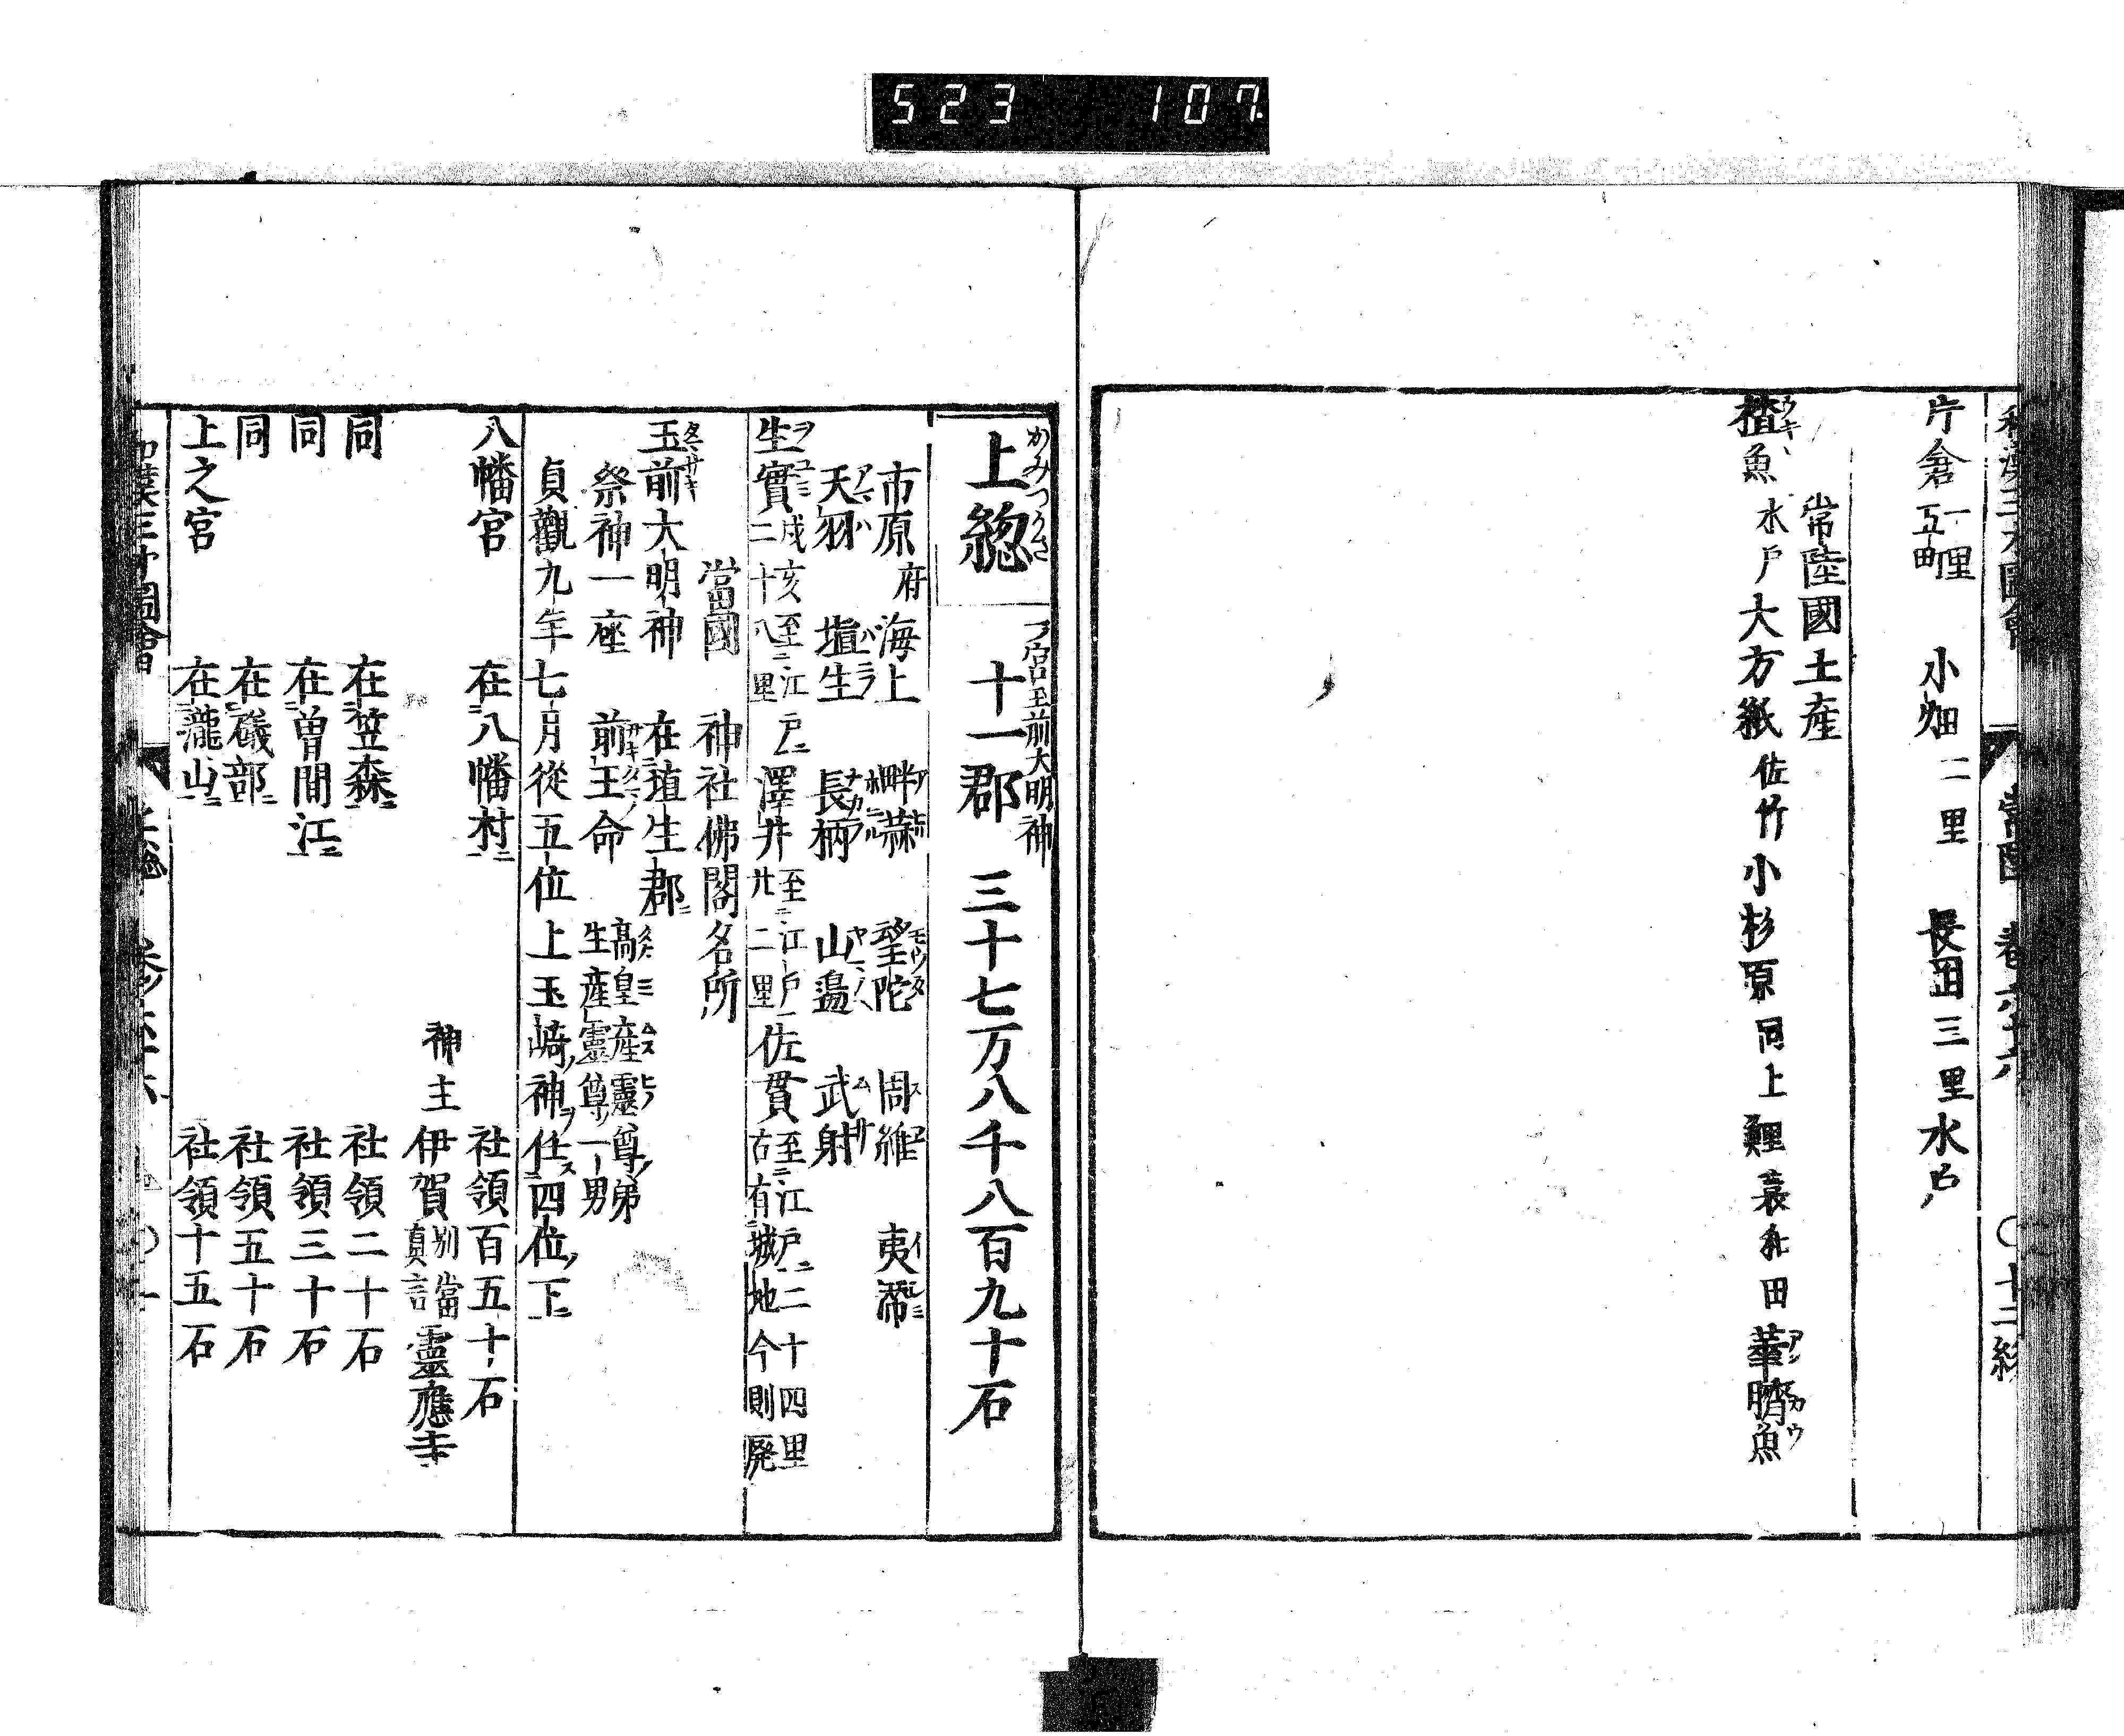 523 107
片倉 一里五町 小畑 二里 長田 三里 水戸
常陸國土産
楂魚 水戸 大方紙 佐竹 小杉原 同上 鯉 蓑和田 華臍魚
上総 かみつふさ 一宮玉前大明神 十一郡 三十七万八千八百九十石
市原 府 海上 畔蒜 望陀 周維 夷灊
天羽 埴生 長柄 山邉 武射
生實 戌亥至江戸二十八里 澤井 至江戸廿二里 佐貫 至江戸二十四里古有城地今則廃
當國 神社佛閣名所
玉前大明神 在埴生郡
祭神一座 前玉命 高皇産霊尊弟生産霊尊一男
貞觀九年七月從五位上玉﨑神任四位下
八幡宮 在八幡村 社領百五十石
神主 伊賀 別當真言 靈應寺
同 在笠森 社領二十石
同 在曽間江 社領三十石
同 在磯部 社領五十石
上之宮 在瀧山 社領十五石